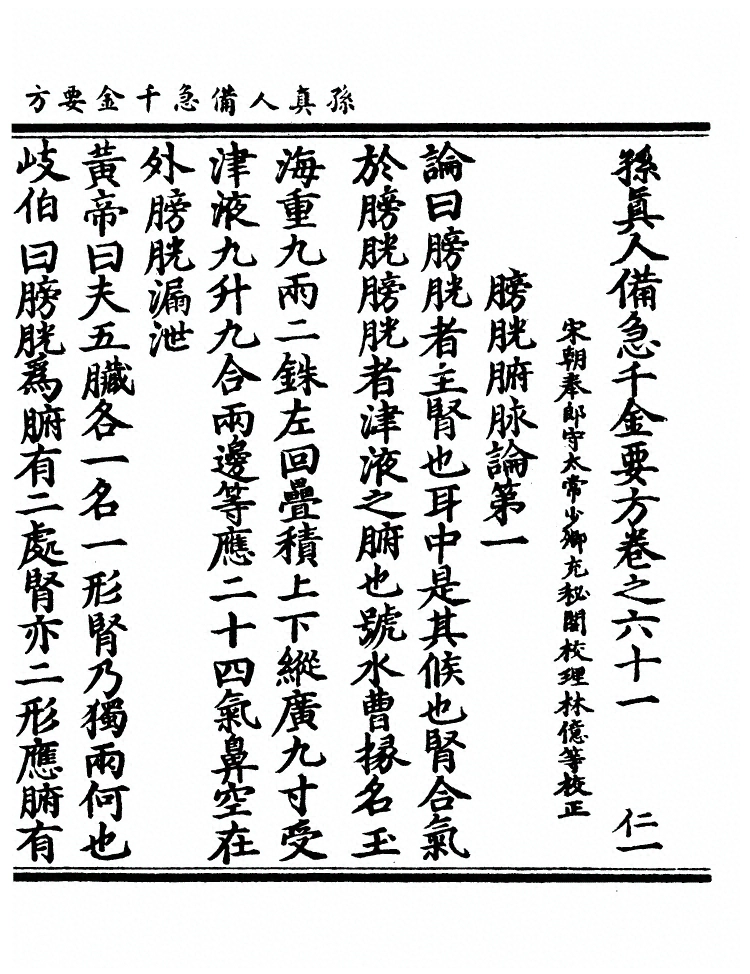 孫真人備急千金要方
孫眞人備急千金要方卷之六十一 仁一
宋朝奉郎守太常少卿充秘閣校理林億等校正
膀胱腑脉論第一
論曰膀胱者主腎也耳中是其候也腎合氣
於膀胱膀胱者津液之腑也號水曹掾名玉
海重九兩二銖左回疊積上下縱廣九寸受
津液九升九合兩邊等應二十四氣鼻空在
外膀胱漏泄
黃帝曰夫五臟各一名一形腎乃獨兩何也
岐伯曰膀胱爲腑有二處腎亦二形應腑有